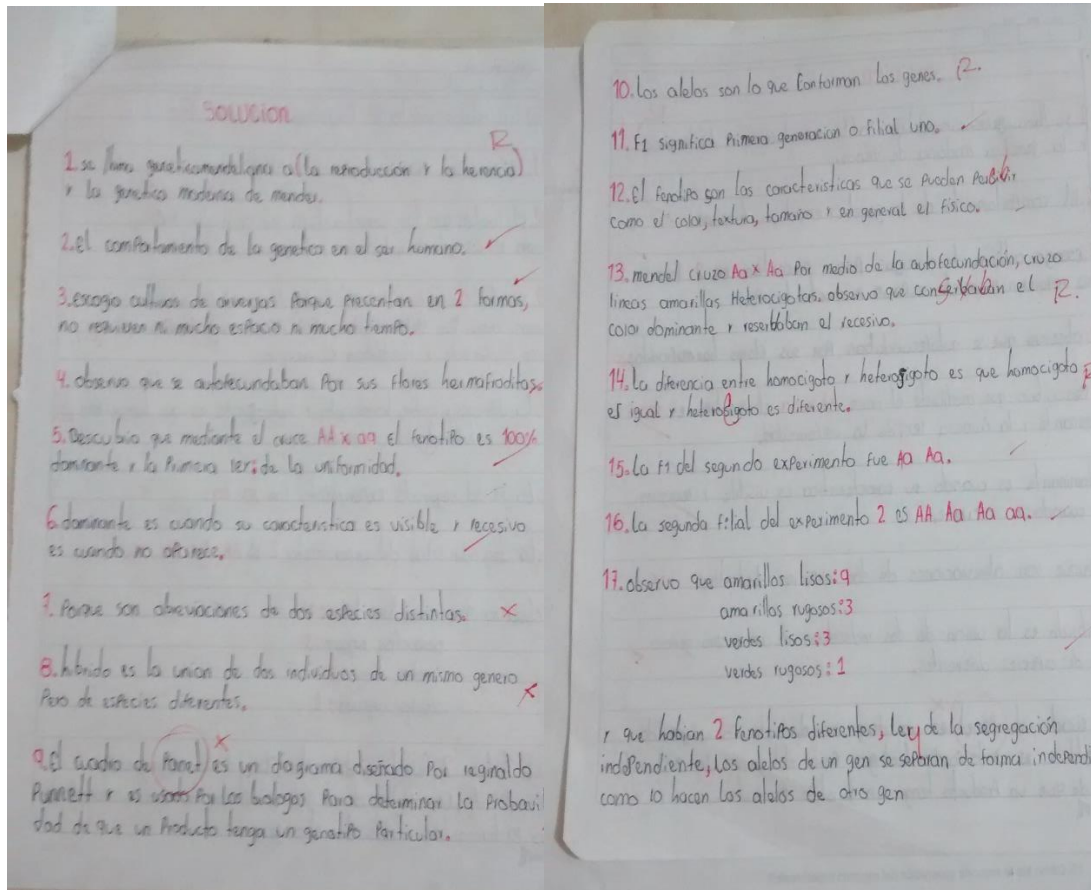 Solucion
1. se llama geneticamendeliana a (la reproducción y la herencia) R
y la genetica moderna de mendel.
2. el comportamiento de la genetica en el ser humano.
3. escogio cultivos de arverjas Porque Precentan en 2 formas,
no requieren ni mucho espacio ni mucho tiempo.
4. observo que se autofecundaban Por sus flores hermafroditas.
5. Descubio que mediante el cruce AA x aa el fenotipo es 100%
dominante y la Primera ler: de la uniformidad.
6. dominante es cuando su caracteristica es visible y recesivo
es cuando no aparece.
7. Porque son abreviaciones de dos especies distintas. x
8. hibrido es la union de dos individuos de un mismo genero
Pero de especies diferentes. x
9. el cuadro de Panet es un diagrama diseñado Por reginaldo x
Punnett y es Por los biologos Para determinar la Probavil
dad de que un Producto tenga un genotipo Particular.
10. Los alelos son lo que Conforman Los genes. R.
11. F1 significa Primera generacion o filial uno.
12. El fenotipo son las caracteristicas que se pueden
como el color, textura, tamaño y en general el fisico.
13. mendel cruzo Aa x Aa Por medio de la autofecundación, cruzo
lineas amarillas Heterocigotas. observo que el R.
color dominante y el recesivo.
14. la diferencia entre homocigoto y heterosigoto es que homocigoto R
es igual y heterosigoto es diferente.
15. La F1 del segundo experimento fue Aa Aa.
16. La segunda filial del experimento 2 es AA Aa Aa aa.
17. observo que amarillos lisos: 9
amarillos rugosos: 3
verdes lisos: 3
verdes rugosos: 1
y que habian 2 fenotipos diferentes, ley de la segregación
independiente, Los alelos de un gen se separan de forma independi
como lo hacen los alelos de otro gen